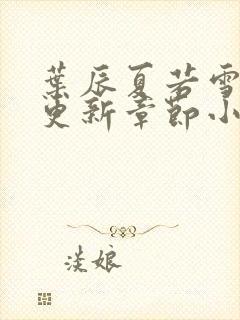 葉辰夏若雪
更新章節小
淡娘